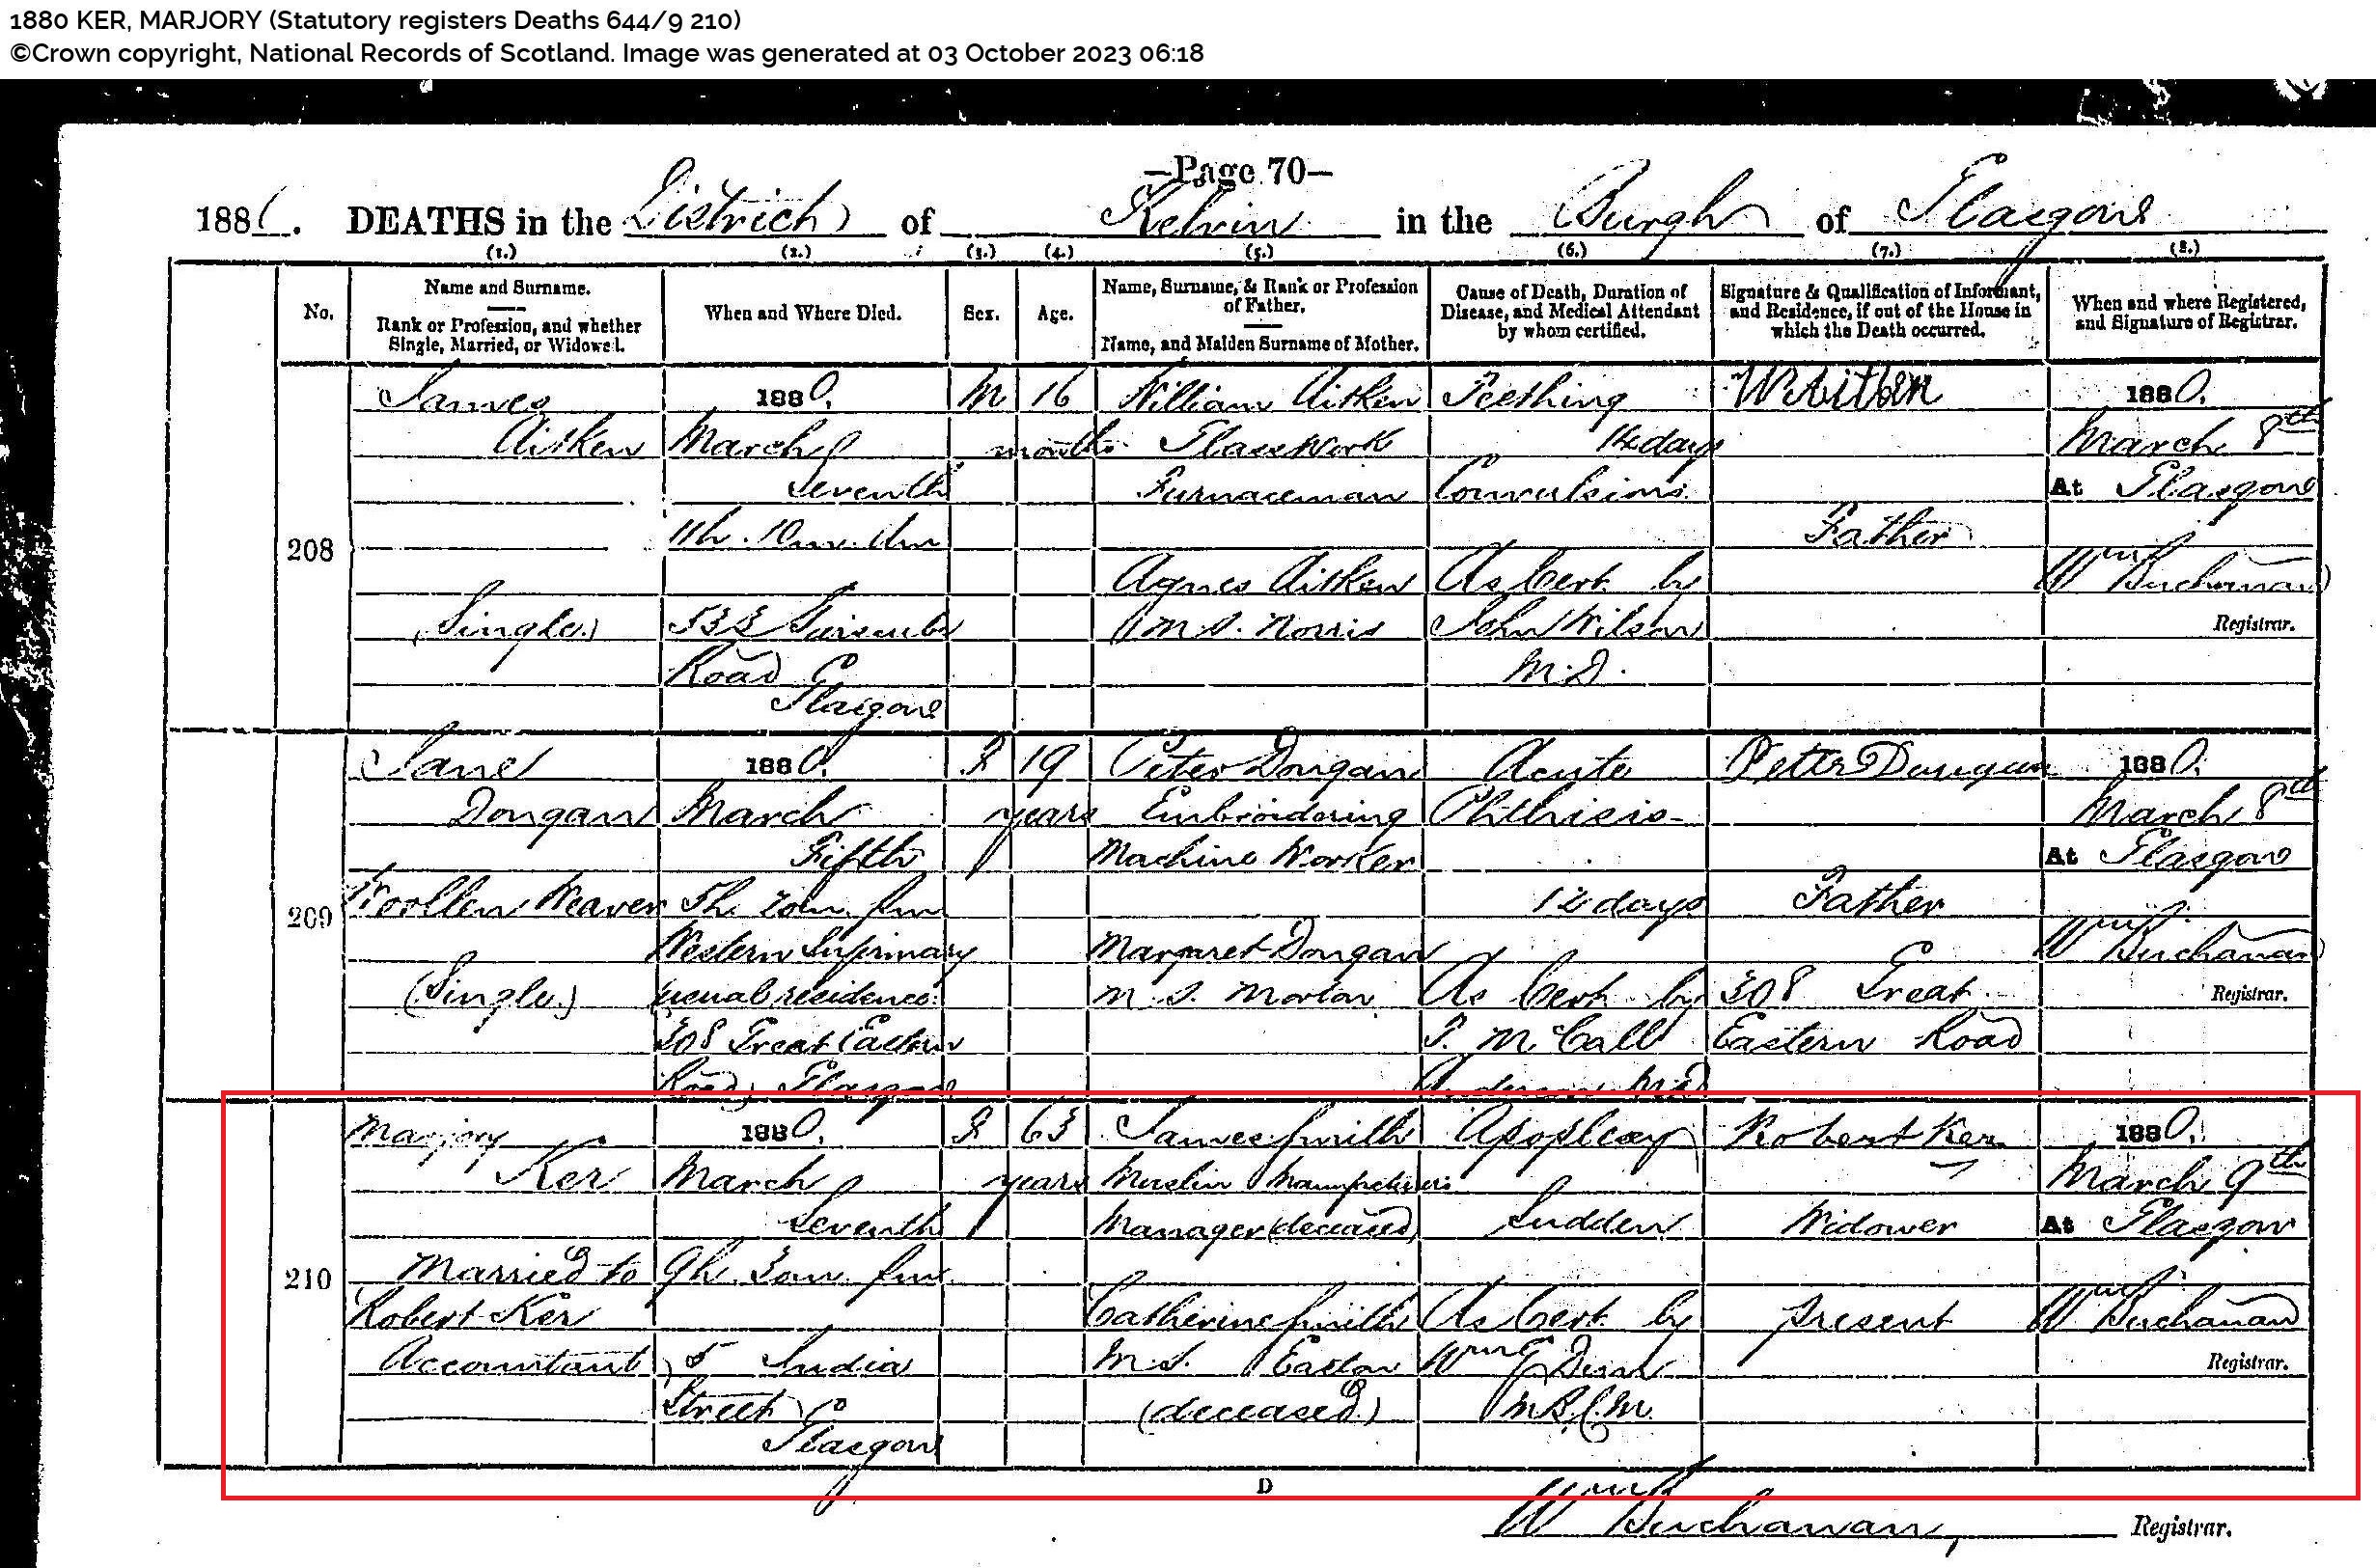 1880 KER, MARJORY (Statutory registers Deaths 644/9 210)
©Crown copyright, National Records of Scotland. Image was generated at 03 October 2023 06:18
—Page 70—
188 . DEATHS in the District of Kelvin in the Burgh of Glasgow
(1.) (2.) (3.) (4.) (5.) (6.) (7.) (8.)
No.
Name and Surname.
Rank or Profession, and whether
Single, Married, or Widowed.
When and Where Died.
Sex.
Age.
Name, Surname, & Rank or Profession
of Father.
Name, and Maiden Surname of Mother.
Cause of Death, Duration of
Disease, and Medical Attendant
by whom certified.
Signature & Qualification of Informant,
and Residence, if out of the House in
which the Death occurred.
When and where Registered,
and Signature of Registrar.
208
James
Aitken
(Single)
1880.
March
Seventh
11h. 10m. Am
533 Garscube
Road
Glasgow
M
16
months
William Aitken
Glasswork
Furnaceman
Agnes Aitken
M.S. Norris
Teething
14 days
Convulsions
As Cert. by
John Wilson
M.D.
W Aitken
Father
1880.
March 8th
At Glasgow
Wm Buchanan
Registrar.
209
Jane
Dongan
Woollen Weaver
(Single)
1880.
March
Fifth
5h. 20m. pm
Western Infirmary
usual residence
308 Great Eastern
Road, Glasgow
F
19
years
Peter Dongan
Embroidering
Machine Worker
Margaret Dongan
M.S. Morton
Acute
Phthisis
12 days
As Cert. by
T. McCall
Anderson M.D.
Peter Dungan
Father
308 Great
Eastern Road
1880.
March 8th
At Glasgow
Wm Buchanan
Registrar.
210
Marjory
Ker
Married to
Robert Ker
Accountant
1880.
March
Seventh
9h. 30m. pm.
5 India
Street
Glasgow
F
63
years
James Smith
Muslin Manufacturers
Manager (deceased)
Catherine Smith
M.S. Easton
(deceased)
Apoplexy
Sudden
As Cert. by
Wm
M.B.C.M.
Robert Ker
Widower
present
1880.
March 9th
At Glasgow
Wm Buchanan
Registrar.
D
Wm Buchanan, Registrar.